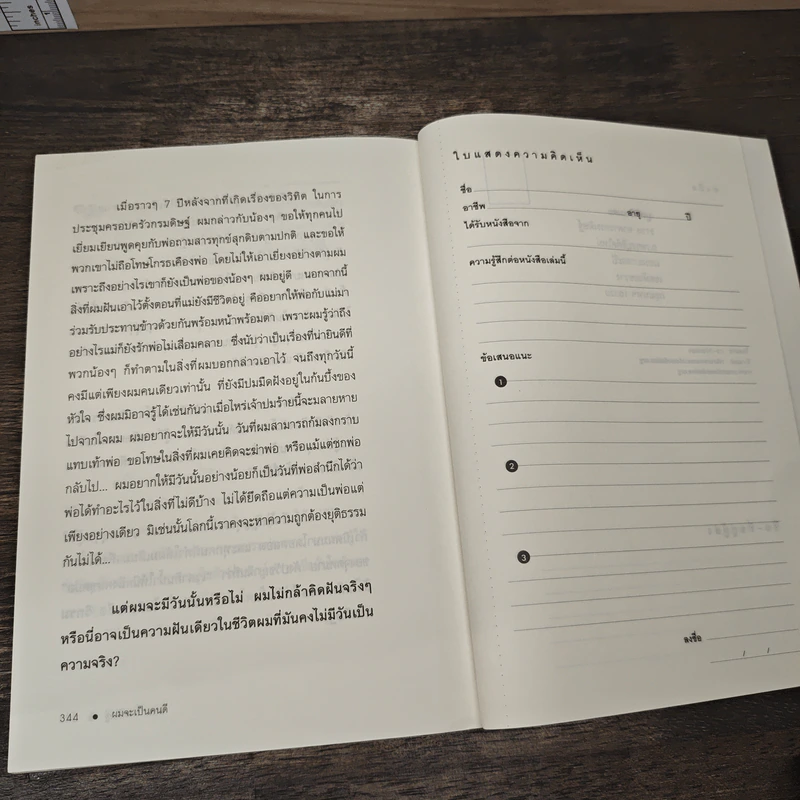 inches
เมื่อราวๆ 7 ปีหลังจากที่เกิดเรื่องของวิทิต ในการ
ประชุมครอบครัวกรมดิษฐ์ ผมกล่าวกับน้องๆ ขอให้ทุกคนไป
เยี่ยมเยียนพูดคุยกับพ่อถามสารทุกข์สุกดิบตามปกติ และขอให้
พวกเขาไม่ถือโทษโกรธเคืองพ่อ โดยไม่ให้เอาเยี่ยงอย่างตามผม
เพราะถึงอย่างไรเขาก็ยังเป็นพ่อของน้องๆ ผมอยู่ดี นอกจากนี้
สิ่งที่ผมฝันเอาไว้ตั้งตอนที่แม่ยังมีชีวิตอยู่ คืออยากให้พ่อกับแม่มา
ร่วมรับประทานข้าวด้วยกันพร้อมหน้าพร้อมตา เพราะผมรู้ว่าถึง
อย่างไรแม่ก็ยังรักพ่อไม่เสื่อมคลาย ซึ่งนับว่าเป็นเรื่องที่น่ายินดีที่
พวกน้องๆ ก็ทำตามในสิ่งที่ผมบอกกล่าวเอาไว้ จนถึงทุกวันนี้
คงมีแต่เพียงผมคนเดียวเท่านั้น ที่ยังมีปมมืดฝังอยู่ในก้นบึ้งของ
หัวใจ ซึ่งผมมิอาจรู้ได้เช่นกันว่าเมื่อไหร่เจ้าปมร้ายนี้จะมลายหาย
ไปจากใจผม ผมอยากจะให้มีวันนั้น วันที่ผมสามารถก้มลงกราบ
แทบเท้าพ่อ ขอโทษในสิ่งที่ผมเคยคิดจะฆ่าพ่อ หรือแม้แต่ชกพ่อ
กลับไป... ผมอยากให้มีวันนั้นอย่างน้อยก็เป็นวันที่พ่อสำนึกได้ว่า
พ่อได้ทำอะไรไว้ในสิ่งที่ไม่ดีบ้าง ไม่ได้ยึดถือแต่ความเป็นพ่อแต่
เพียงอย่างเดียว มิเช่นนั้นโลกนี้เราคงจะหาความถูกต้องยุติธรรม
กันไม่ได้...
แต่ผมจะมีวันนั้นหรือไม่ ผมไม่กล้าคิดฝันจริงๆ
หรือนี่อาจเป็นความฝันเดียวในชีวิตผมที่มันคงไม่มีวันเป็น
ความจริง?
344 ● ผมจะเป็นคนดี
ใบแสดงความคิดเห็น
ชื่อ
อาชีพ อายุ ปี
ได้รับหนังสือจาก
ความรู้สึกต่อหนังสือเล่มนี้
ข้อเสนอแนะ
1
2
3
ลงชื่อ
/ /